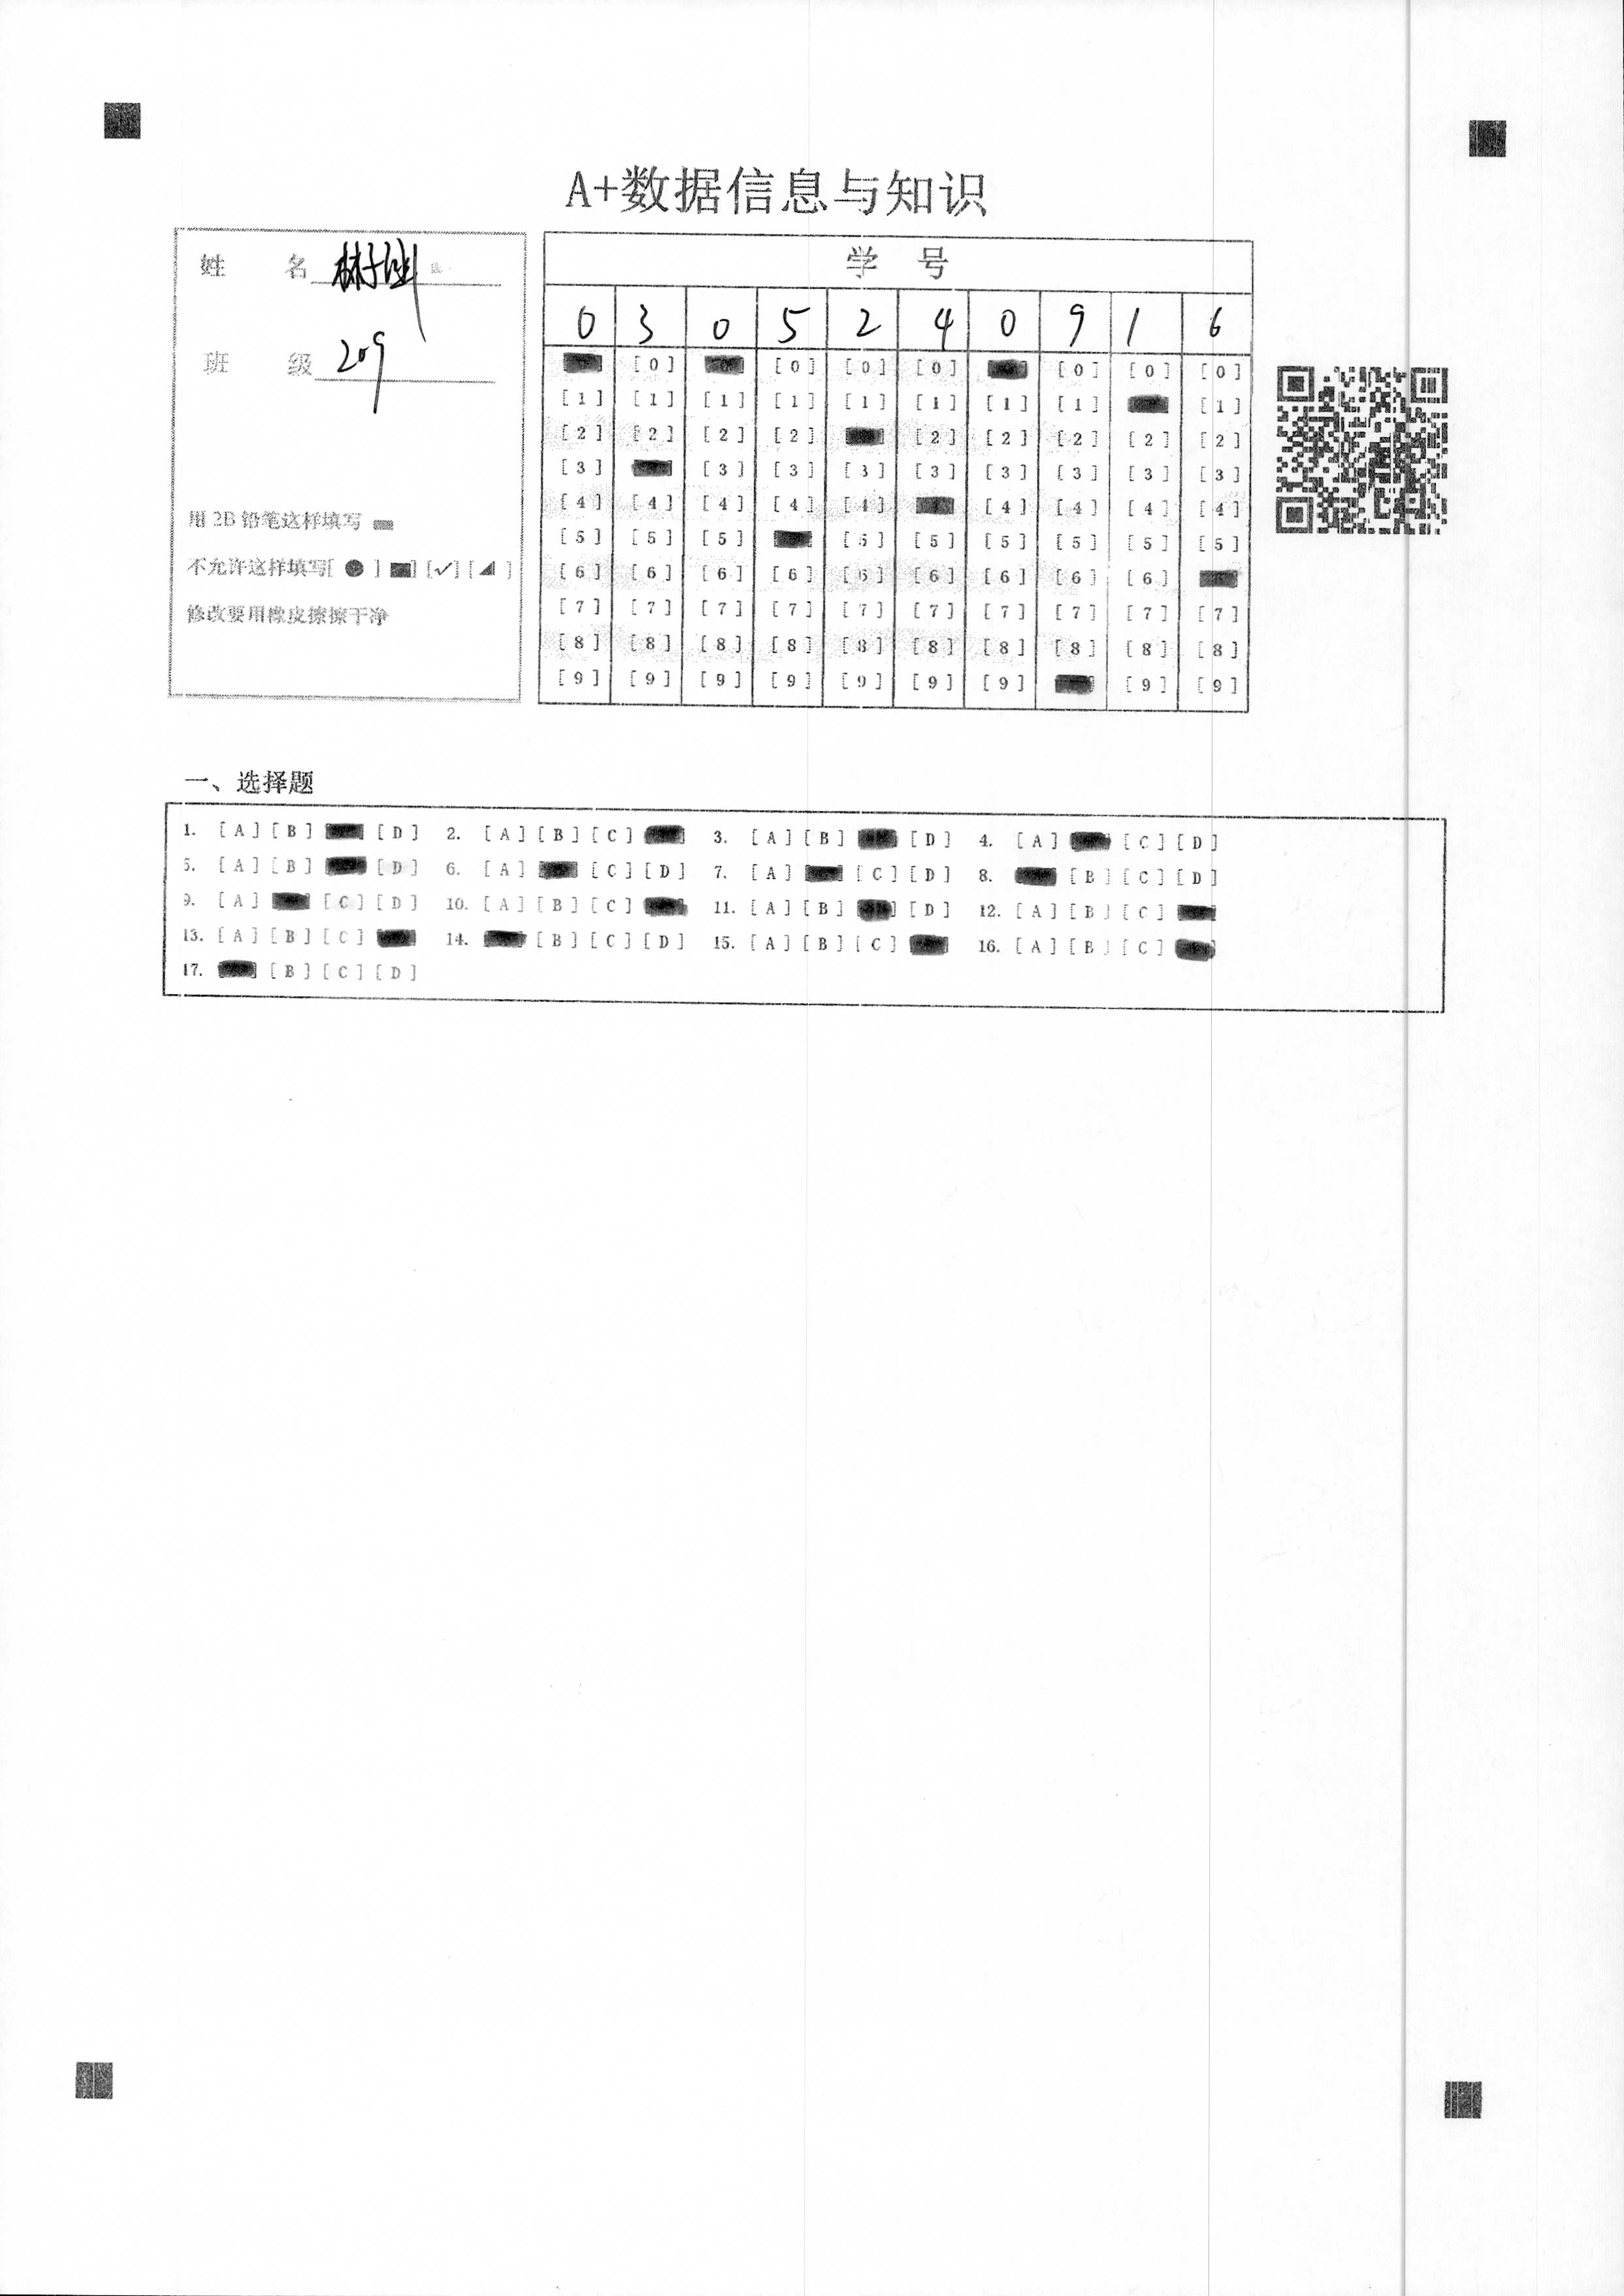 A+数据信息与知识
姓 名
班 级 209
用 2B 铅笔这样填写
不允许这样填写[ ● ] [✓] [ ]
修改要用橡皮擦擦干净
学 号
0 3 0 5 2 4 0 9 1 6
[0] [0] [0] [0] [0] [0] [0]
[1] [1] [1] [1] [1] [1] [1] [1] [1]
[2] [2] [2] [2] [2] [2] [2] [2] [2]
[3] [3] [3] [3] [3] [3] [3] [3] [3]
[4] [4] [4] [4] [4] [4] [4] [4] [4]
[5] [5] [5] [5] [5] [5] [5] [5] [5]
[6] [6] [6] [6] [6] [6] [6] [6] [6]
[7] [7] [7] [7] [7] [7] [7] [7] [7] [7]
[8] [8] [8] [8] [8] [8] [8] [8] [8] [8]
[9] [9] [9] [9] [9] [9] [9] [9] [9]
一、选择题
1. [A] [B] [D] 2. [A] [B] [C] 3. [A] [B] [D] 4. [A] [C] [D]
5. [A] [B] [D] 6. [A] [C] [D] 7. [A] [C] [D] 8. [B] [C] [D]
9. [A] [C] [D] 10. [A] [B] [C] 11. [A] [B] [D] 12. [A] [B] [C]
13. [A] [B] [C] 14. [B] [C] [D] 15. [A] [B] [C] 16. [A] [B] [C]
17. [B] [C] [D]